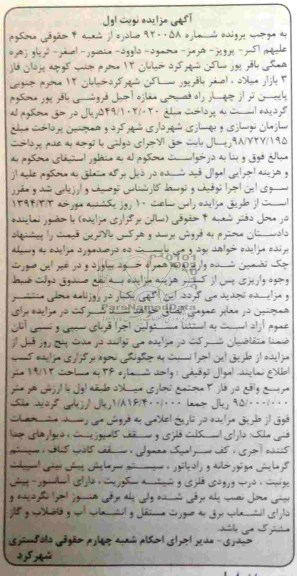 آگهی مزایده نوبت اول
به موجب پرونده شماره ۹۲۰۰۵۸ صادره از شعبه ۴ حقوقی محکوم
علیهم اکبر- پرویز- هرمز- محمود- داوود- منصور- اصغر- ثریاو زهره
همگی باقر پور ساکن شهرکرد خیابان ۱۲ محرم جنب کوچه یزدان فاز
۳ بازار میلاد ، اصغر باقرپور ساکن شهرکردخیابان ۱۲ محرم جنوبی
پایین تر از چهار راه فصیحی مغازه آجیل فروشی باقر پور محکوم
گردیده است به پرداخت مبلغ ۵۴۹/۱۰۲/۰۲۰ریال در حق محکوم له
سازمان نوسازی و بهسازی شهرداری شهرکرد و همچنین پرداخت مبلغ
۹۸/۷۲۷/۱۹۵ریال بابت حق الاجرای دولتی با توجه به عدم پرداخت
مبالغ فوق و بنا به درخواست محکوم له به منظور استیفای محکوم به
و هزینه اجرایی اموال قید شده در ذیل برگه متعلق به محکوم علیه از
سوی این اجرا توقیف و توسط کارشناس توصیف و ارزیابی شد و مقرر
است از طریق مزایده راس ساعت ۱۰ روز یکشنبه مورخه ۱۳۹۴/۳/۳
در محل دفتر شعبه ۴ حقوقی (سالن برگزاری مزایده) با حضور نماینده
دادستان محترم به فروش برسد و هرکس بالاترین قیمت را پیشنهاد
برنده مزایده خواهد بود و می بایست ده درصدمورد مزایده به وسیله
چک تضمین شده واریز و به همراه خود بیاورد و در غیر این صورت
وجوه واریزی پس از کسر هزینه مزایده به نفع صندوق دولت ضبط
و مزایده تجدید می گردد. این آگهی یکبار در روزنامه محلی منتشر
همچنین در معابر عمومی شرکت در مزایده برای
عموم آزاد است به استثناء مسئولین اجرا قربای سببی و نسبی آنان
ضمنا متقاضیان شرکت در مزایده می توانند در مدت پنج روز قبل از
مزایده از طریق این اجرا نسبت به چگونگی نحوه برگزاری مزایده کسب
اطلاع نمایند. اموال توقیفی : واحد شماره ۳۶ به مساحت ۱۹/۱۲ متر
مربع واقع در فاز ۳ مجتمع تجاری میلاد طبقه اول با ارزش هر متر
۹۵/۰۰۰/۰۰۰ ریال جمعا ۱/۸۱۶/۴۰۰/۰۰۰ریال ارزیابی گردید ملک
فوق از طریق مزایده در تاریخ اعلامی به فروش می رسد. مشخصات
فنی ملک: دارای اسکلت فلزی و سقف کامپوزیت ، دیوارهای جدا
کننده آجری ، کف سرامیک معمولی ، سقف کاذب کناف ، سیستم
گرمایش موتورخانه و رادیاتور ، سیستم سرمایش پیش بینی اسپلیت
یونیت ، درب ورودی فلزی و شیشه سکوریت ، دارای آسانسور- پیش
بینی محل نصب پله برقی شده ولی پله برقی هنوز اجرا نگردیده و
دارای انشعاب برق به صورت مستقل و انشعاب آب و فاضلاب و گاز
مشترک می باشد.
حیدری- مدیر اجرای احکام شعبه چهارم حقوقی دادگستری
شهرکرد